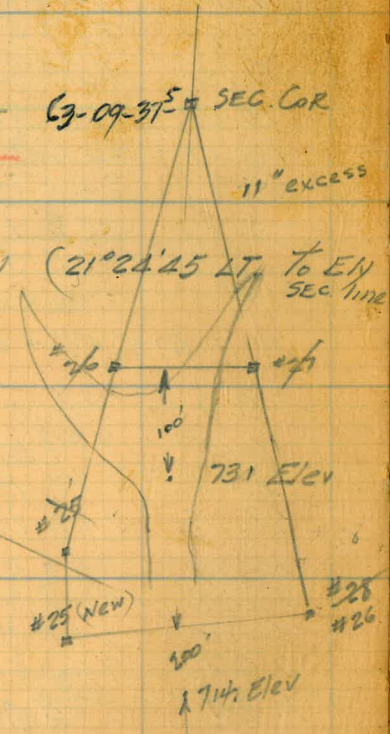 63-09-37⁵ SEC. COR
11" excess
(21°24'45 LT. To EN
SEC. line
100'
731 Elev
#25
#25 (New)
#28
#26
200'
714. Elev